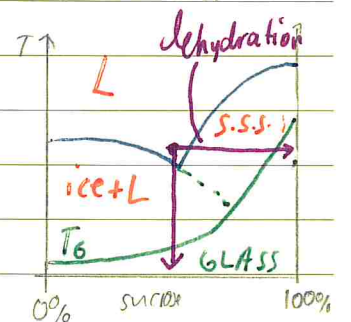 dehydration
T
L
s.s.s.
ice+L
TG
GLASS
0%
sucrose
100%